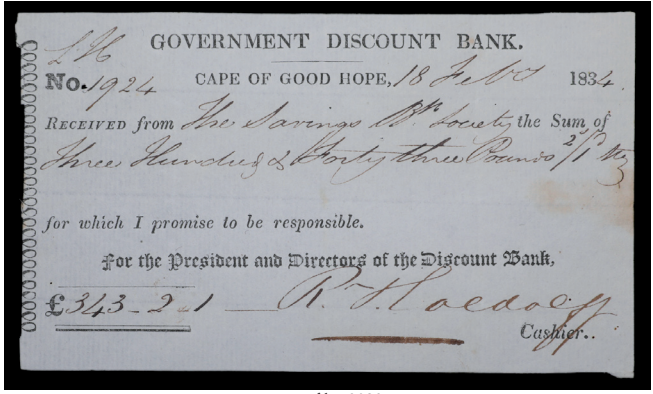 GOVERNMENT DISCOUNT BANK.
No. 1924 CAPE OF GOOD HOPE, 18 Feby 1834.
RECEIVED from The Savings Bk. Society the Sum of
Three Hundred & Forty three Pounds 2/1
for which I promise to be responsible.
For the President and Directors of the Discount Bank,
£343-2-1
Cashier..